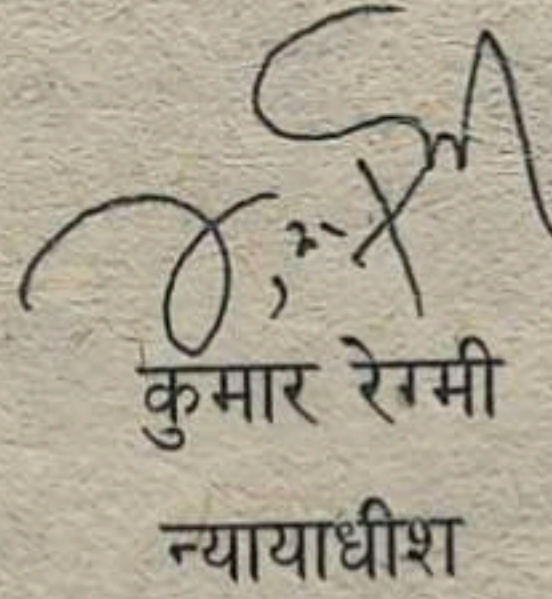 कुमार रेग्मी
न्यायाधीश